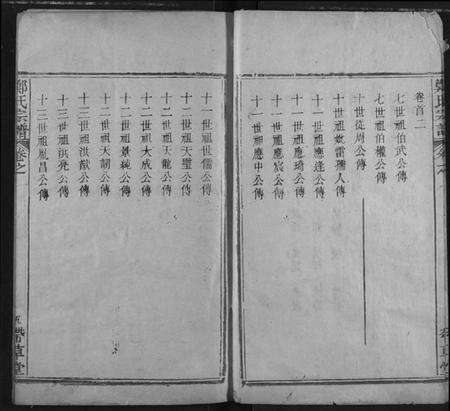 鄭氏宗譜
卷首二
七世祖伯武公傳
七世祖伯權公傳
十世從周公傳
十世祖妣雷孺人傳
十一世祖應達公傳
十一世祖應琦公傳
十一世祖應宸公傳
十一世祖應中公傳
十一世祖世儒公傳
十二世祖天璽公傳
十二世祖天龍公傳
十二世祖大成公傳
十二世祖
十二世祖天韌公傳
十三世祖洪猷公傳
十三世祖洪亮公傳
十三世祖胤昌公傳
鄭氏宗譜
卷之
草堂